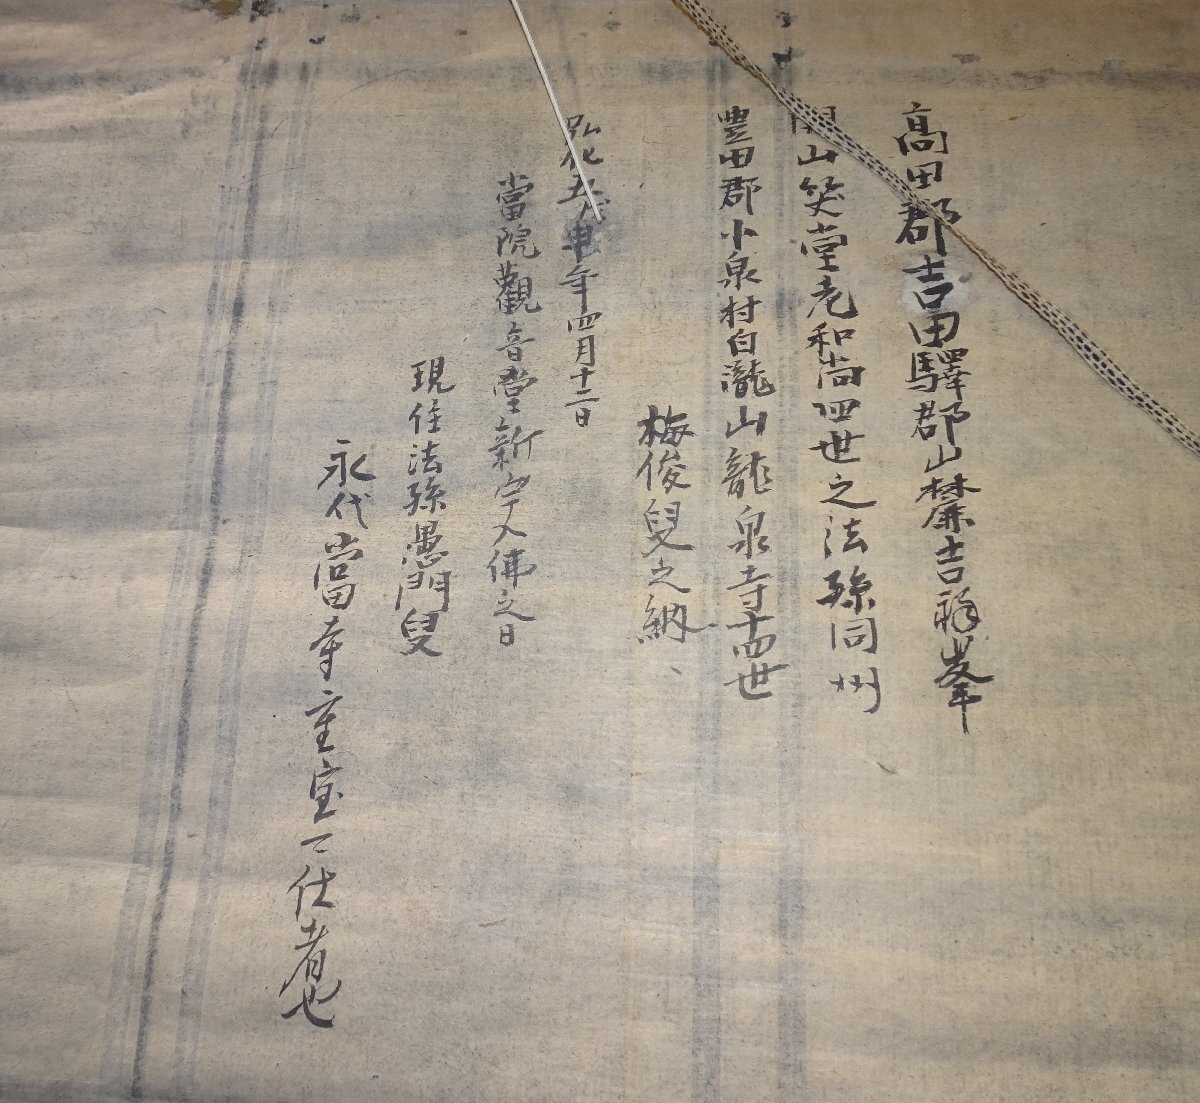 高田郡吉田驛郡山麓吉祥峯
開山笑堂老和尚四世之法孫同州
豊田郡小泉村白瀧山龍泉寺十四世
梅俊叟之納
弘化五戊申年四月十二日
當院觀音堂新字入佛之日
現住法孫愚門叟
永代當寺重宝ニ仕者也